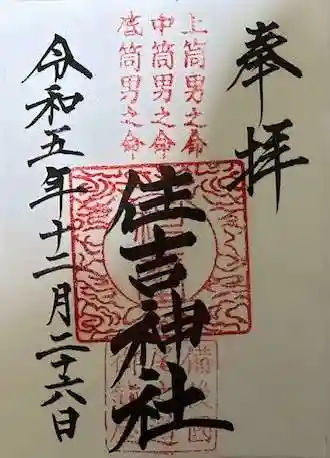 奉拝
上筒男之命
中筒男之命
底筒男之命
住吉神社
令和五年十二月二十六日